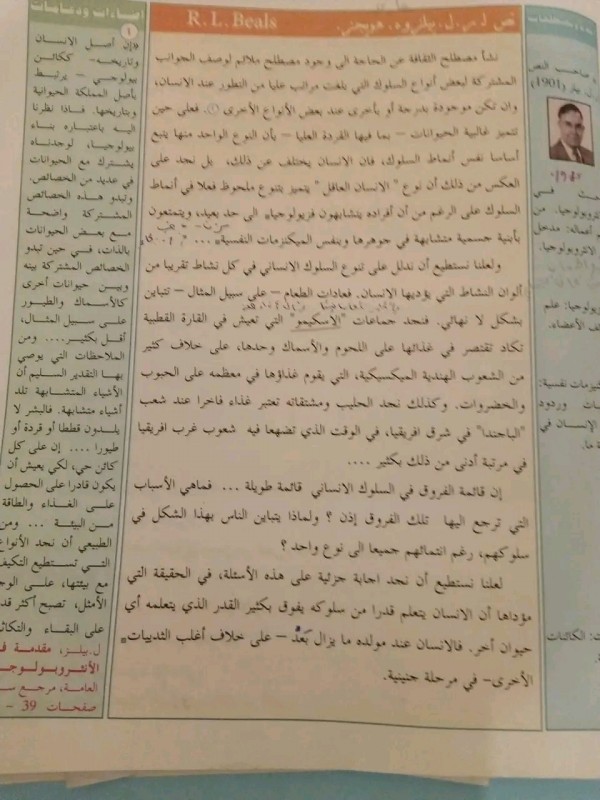 نص ل.ر.ل.بيلزوه.هويجنر. R. L. Beals
نشأ مصطلح الثقافة عن الحاجة الى وجود مصطلح ملائم لوصف الجوانب
المشتركة لبعض أنواع السلوك التي بلغت مراتب عليا من التطور عند الانسان،
وان تكن موجودة بدرجة أو بأخرى عند بعض الأنواع الأخرى. فعلى حين
تتميز غالبية الحيوانات – بما فيها القردة العليا – بأن النوع الواحد منها يتبع
أساسا نفس أنماط السلوك، فان الانسان يختلف عن ذلك، بل نجد على
العكس من ذلك أن نوع " الانسان العاقل " يتميز بتنوع ملحوظ فعلا في أنماط
السلوك على الرغم من أن أفراده يتشابهون فزيولوجيا* الى حد بعيد، ويتمتعون
بأبنية جسمية متشابهة في جوهرها وبنفس الميكنزمات النفسية* ... .
ولعلنا نستطيع أن ندلل على تنوع السلوك الانساني في كل نشاط تقريبا من
ألوان النشاط التي يؤديها الانسان. فعادات الطعام – على سبيل المثال – تتباين
بشكل لا نهائي. فنجد جماعات "الاسكيمو" التي تعيش في القارة القطبية
تكاد تقتصر في غذائها على اللحوم والأسماك وحدها، على خلاف كثير
من الشعوب الهندية الميكسيكية، التي يقوم غذاؤها في معظمه على الحبوب
والخضروات. وكذلك نجد الحليب ومشتقاته تعتبر غذاء فاخرا عند شعب
"الباجندا" في شرق افريقيا، في الوقت الذي تضعها فيه شعوب غرب افريقيا
في مرتبة أدنى من ذلك بكثير ....
إن قائمة الفروق في السلوك الانساني قائمة طويلة ... فماهي الأسباب
التي ترجع اليها تلك الفروق إذن ؟ ولماذا يتباين الناس بهذا الشكل في
سلوكهم، رغم انتمائهم جميعا الى نوع واحد ؟
لعلنا نستطيع أن نجد اجابة جزئية على هذه الأسئلة، في الحقيقة التي
مؤداها أن الانسان يتعلم قدرا من سلوكه يفوق بكثير القدر الذي يتعلمه أي
حيوان أخر. فالانسان عند مولده ما يزال بَعْدُ – على خلاف أغلب الثدييات*
الأخرى- في مرحلة جنينية.
إسنادات ودعامات
1
«إن أصل الانسان
وتاريخه- ككائن
بيولوجي – يرتبط
بأصل المملكة الحيوانية
وبتاريخها. فاذا نظرنا
اليه باعتباره بناء
بيولوجيا، لوجدناه
يشترك مع الحيوانات
في عديد من الخصائص.
وتبدو هذه الخصائص
المشتركة واضحة
مع بعض الحيوانات
بالذات، في حين تبدو
الخصائص المشتركة بينه
وبين حيوانات أخرى
كالأسماك والطيور
على سبيل المثال،
أقل بكثير.... ومن
الملاحظات التي يوصي
بها التقدير السليم أن
الأشياء المتشابهة تلد
أشياء متشابهة. فالبشر لا
يلدون قططا أو قردة أو
طيورا .... إن على كل
كائن حي، لكي يعيش أن
يكون قادرا على الحصول
على الغذاء والطاقة
من البيئة ... ومن
الطبيعي أن نجد الأنواع
التي تستطيع التكيف
مع بيئتها، على الوجه
الأمثل، تصبح أكثر
على البقاء والتكاثر
ل.بيلز، مقدمة
الأنثروبولوجيا
العامة، مرجع
صفحات 39 -
صاحب النص
بيلز (1901)